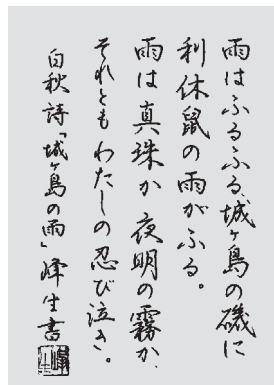 雨はふるふる、城ヶ島の磯に
利休鼠の雨がふる。
雨は真珠か夜明の霧か、
それともわたしの忍び泣き。
白秋詩「城ヶ島の雨」峰生書